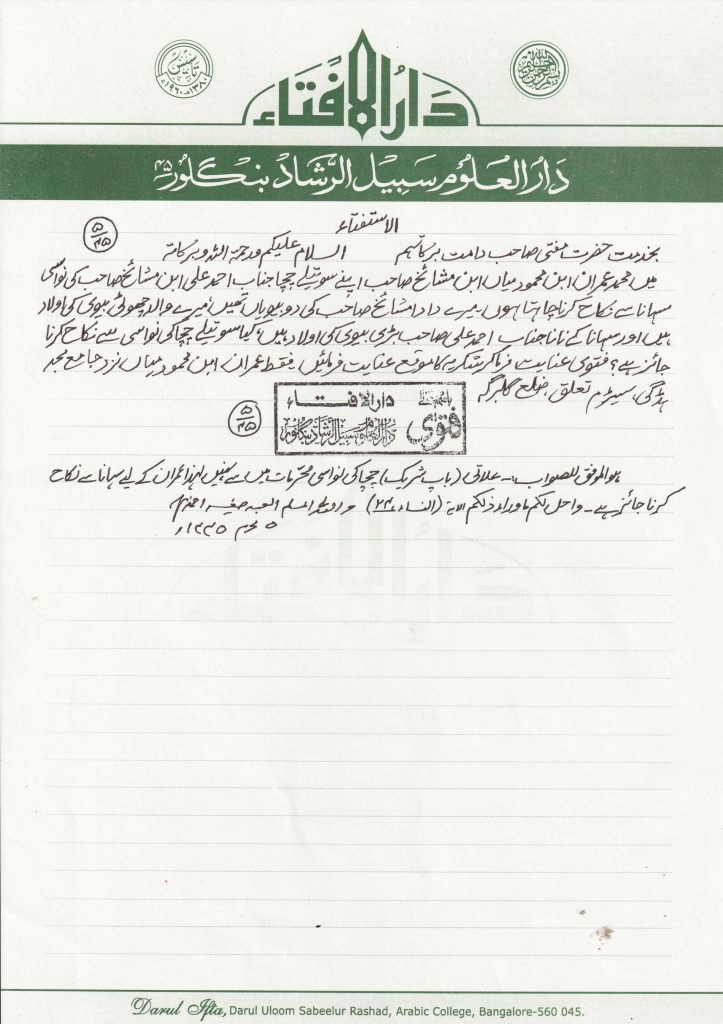 تاسیس
۱۳۸۰ھ ۱۹۶۰ء
دَارُالْاِفْتَاء
دَارُالعُلُوم سَبِیْلُ الرَّشَاد بنگلور ۴۵
الاستفتاء
۵/۴۵
بخدمت حضرت مفتی صاحب دامت برکاتہم السلام علیکم ورحمۃ اللہ وبرکاتہ
میں محمد عمران ابن محمود میاں ابن مشائخ صاحب اپنے سوتیلے چچا جناب احمد علی ابن مشائخ صاحب کی نواسی
سہانا سے نکاح کرنا چاہتا ہوں، میرے دادا مشائخ صاحب کی دو بیویاں تھیں، میرے والد چھوٹی بیوی کی اولاد
ہیں اور سہانا کے نانا جناب احمد علی صاحب بڑی بیوی کی اولاد ہیں، کیا سوتیلے چچا کی نواسی سے نکاح کرنا
جائز ہے؟ فتویٰ عنایت فرماکر شکریہ کا موقع عنایت فرمائیں، فقط عمران ابن محمود میاں نزد جامع مسجد
ہڈگی، سیڑم تعلق، ضلع گلبرگہ
دارالافتاء
فتویٰ
دارالعلوم سبیل الرشاد بنگلور
۵/۴۵
ہو الموفق للصواب :- علاتی (باپ شریک) چچا کی نواسی محرمات میں سے نہیں لہذا عمران کے لیے سہانا سے نکاح
کرنا جائز ہے۔ واحل لکم ماوراء ذلکم الآیۃ (النساء ۲۴) واللہ اعلم العبد
۵ محرم ۱۴۴۵ھ
دارالافتاء
Darul Ifta, Darul Uloom Sabeelur Rashad, Arabic College, Bangalore-560 045.